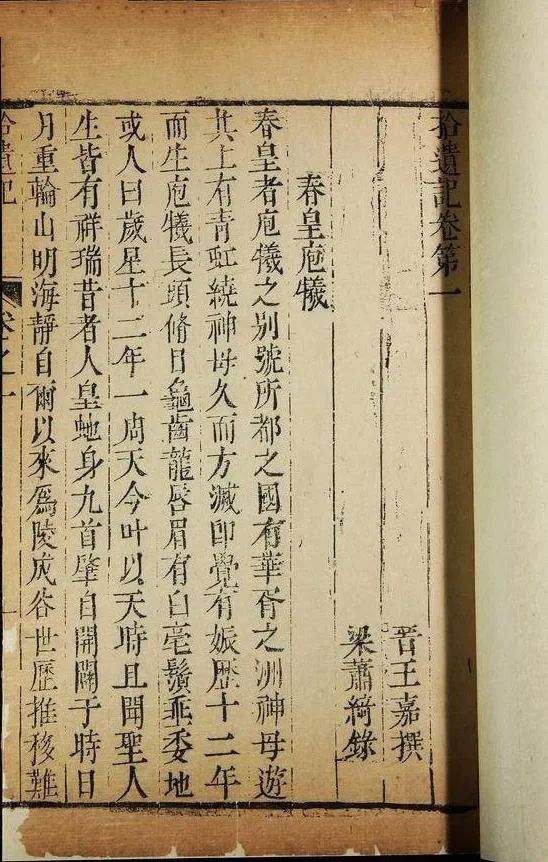 拾遺記卷第一
晉王嘉撰
梁蕭綺錄
春皇庖犧
春皇者庖犧之別號所都之國有華胥之洲神母遊
其上有青虹繞神母久而方滅卽覺有娠歷十二年
而生庖犧長頭脩目龜齒龍唇眉有白毫鬚垂委地
或人曰歲星十二年一周天今叶以天時且聞聖人
生皆有祥瑞昔者人皇蛇身九首肇自開闢于時日
月重輪山明海靜自爾以來爲陵成谷世歷推移難
拾遺記
卷之一